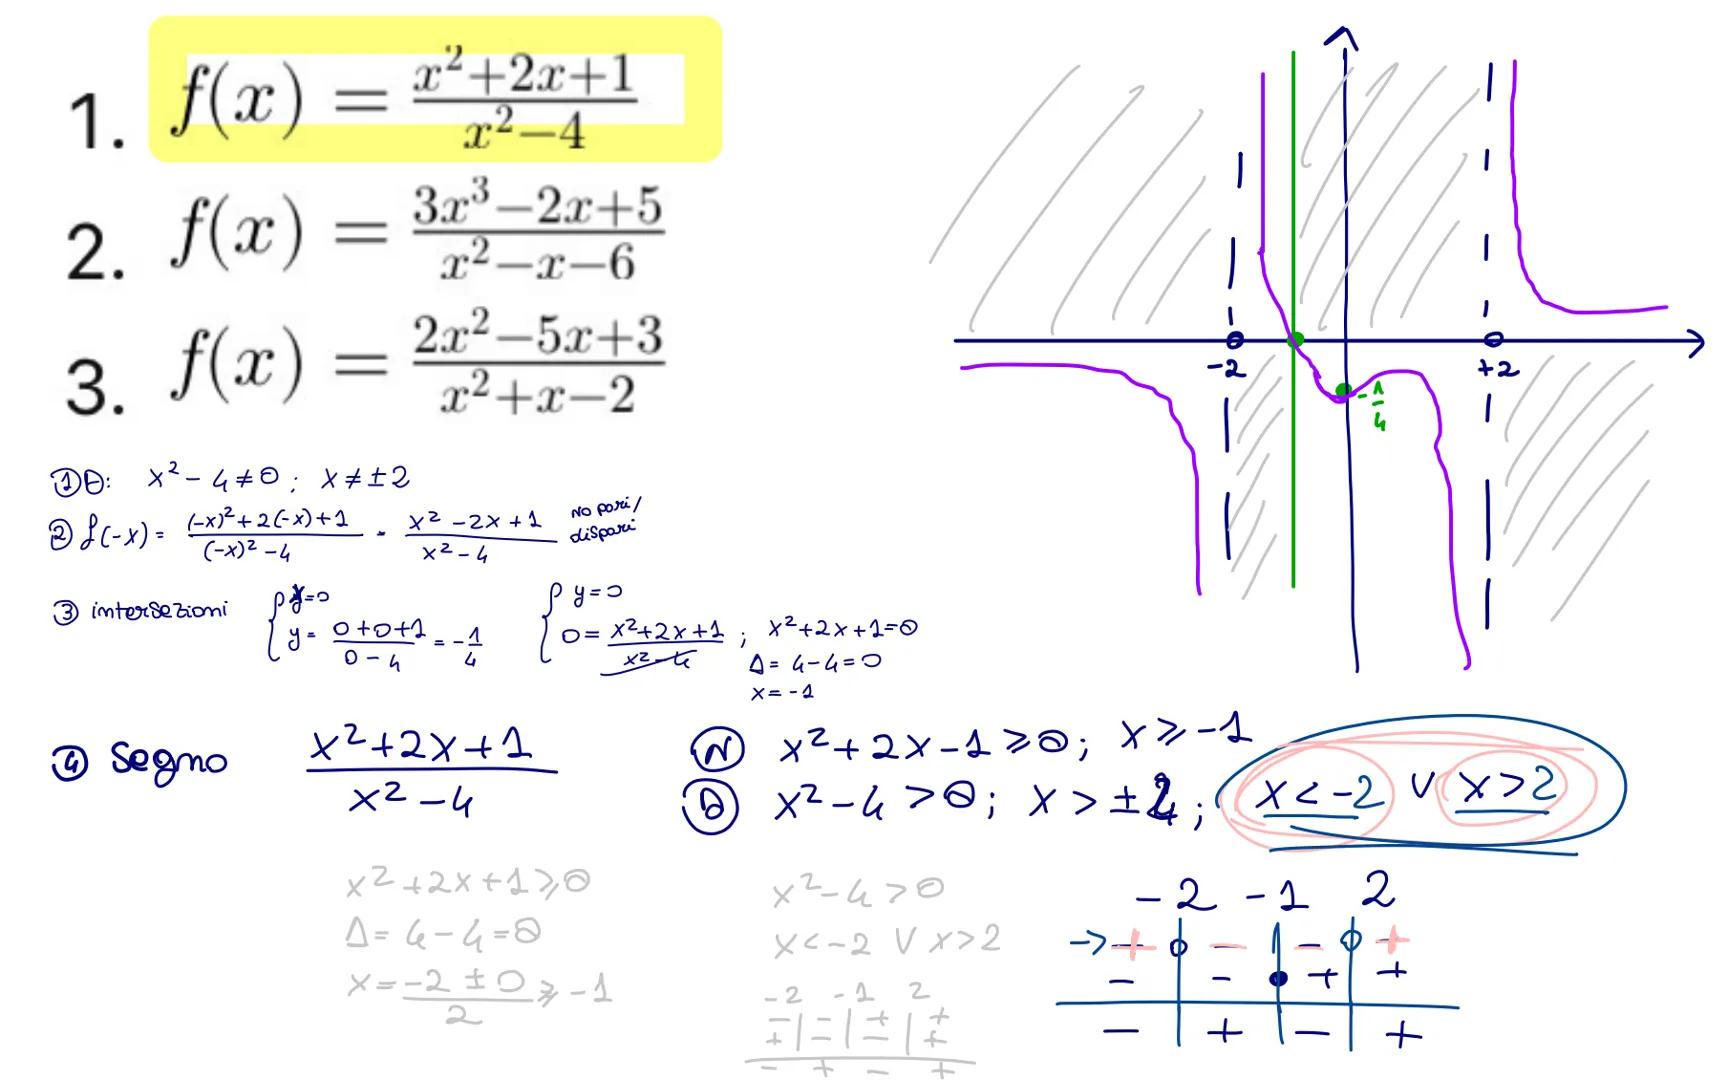 1. f(x) = \frac{x^2+2x+1}{x^2-4}
2. f(x) = \frac{3x^3-2x+5}{x^2-x-6}
3. f(x) = \frac{2x^2-5x+3}{x^2+x-2}
-2
+2
-\frac{1}{4}
① D: x² - 4 ≠ 0 ; x ≠ ± 2
② f(-x) = \frac{(-x)²+2(-x)+1}{(-x)²-4} = \frac{x²-2x+1}{x²-4} No pari/
dispari
③ intersezioni { x=0
y = \frac{0+0+1}{0-4} = -\frac{1}{4}
{ y=0
0 = \frac{x²+2x+1}{x²-4} ; x²+2x+1=0
Δ = 4-4=0
x = -1
④ Segno \frac{x²+2x+1}{x²-4}
Ⓝ x²+2x-1 ≥ 0 ; x ≥ -1
Ⓓ x²-4 > 0 ; x > ±2 ; x < -2 ∨ x > 2
x²+2x+1 ≥ 0
Δ = 4-4=0
x = \frac{-2 ± 0}{2} ≥ -1
x²-4 > 0
x < -2 ∨ x > 2
-2 -1 2
- | - | + | +
+ | - | - | +
- + - +
-2 -1 2
→ + - - +
- - + +
- + - +